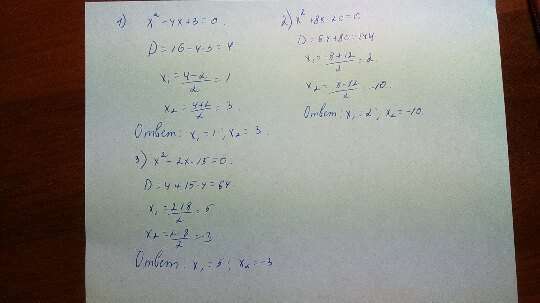 1) x² - 4x + 3 = 0.
D = 16 - 4·3 = 4
x₁ = (4-2)/2 = 1
x₂ = (4+2)/2 = 3.
Ответ: x₁ = 1; x₂ = 3.
2) x² + 8x - 20 = 0
D = 64 + 80 = 144
x₁ = (-8+12)/2 = 2.
x₂ = (-8-12)/2 = -10.
Ответ: x₁ = 2; x₂ = -10.
3) x² - 2x - 15 = 0.
D = 4 + 15·4 = 64
x₁ = (2+8)/2 = 5
x₂ = (2-8)/2 = -3
Ответ: x₁ = 5; x₂ = -3